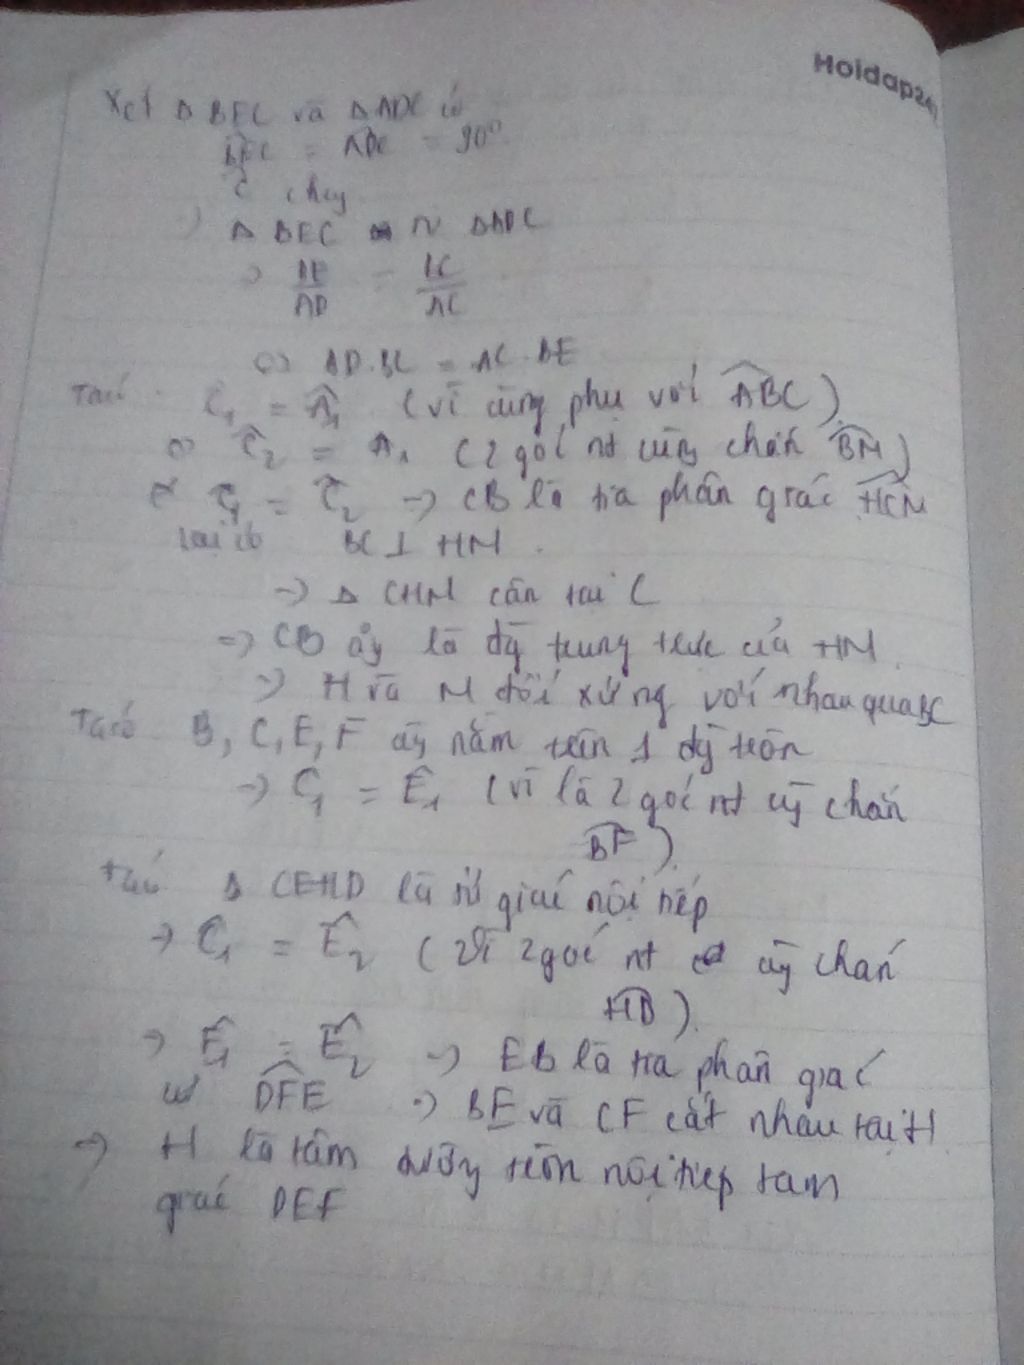 Hoidap247
Xét Δ BEC và Δ ADC có
BEC = ADC = 90°
Ĉ chung
=> Δ BEC ~ ΔADC
=> BE/AD = BC/AC
<=> AD.BC = AC.BE
Ta có Ĉ₁ = Â₁ (vì cùng phụ với ABC)
Ĉ₂ = A₁ (2 góc nt cùng chắn BM)
Ĉ₁ = Ĉ₂ -> CB là tia phân giác HCM
lại có BC ⊥ HM.
-> Δ CHM cân tại C
=> CB là đg trung trực của HM.
=> H và M đối xứng với nhau qua BC
Ta có B, C, E, F nằm trên 1 đg tròn
-> Ĉ₁ = Ê₁ (vì là 2 góc nt cùng chắn
BF)
CEHD là tứ giác nội tiếp
-> Ĉ₁ = Ê₂ (vì 2 góc nt chắn
HD)
=> Ê₁ = Ê₂ -> EB là tia phân giác
DFE -> BE và CF cắt nhau tại H
=> H là tâm đường tròn nội tiếp tam
giác DEF